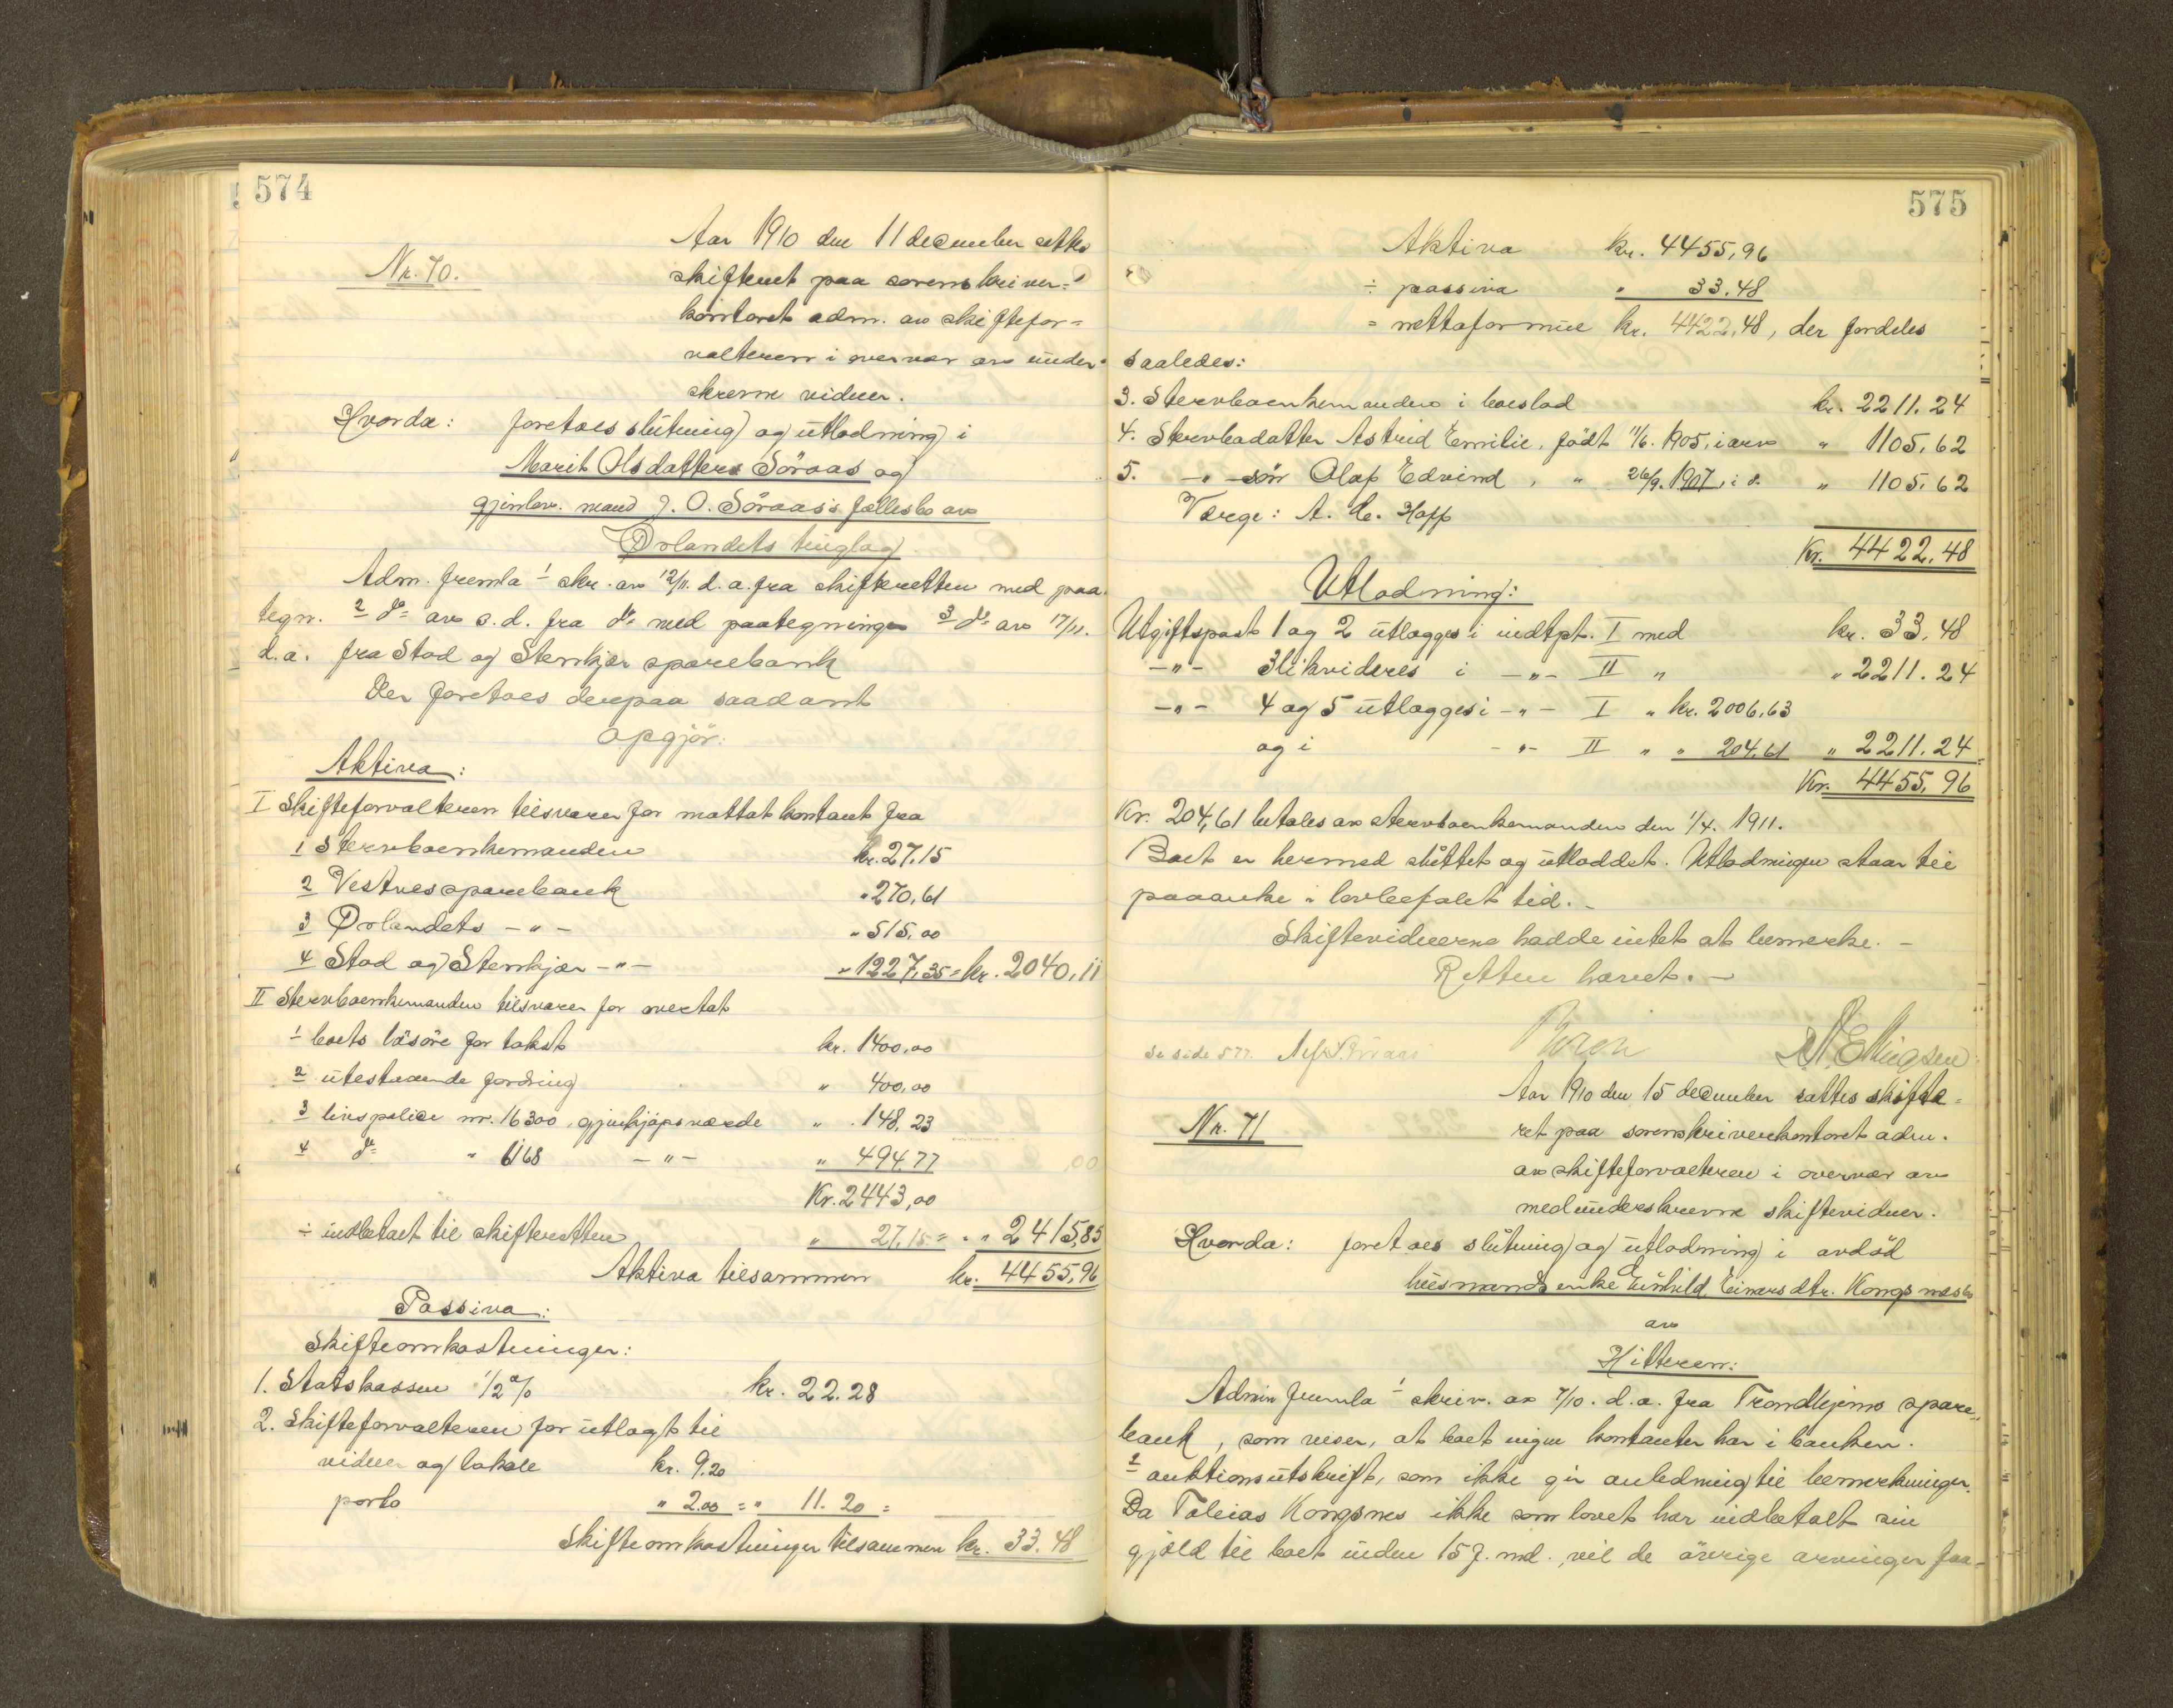 574
Aar 1910 den 11 december sattes
Nr. 70.
skifteret paa sorenskriver=
kontoret adm. av skiftefor=
valteren i overvær av under=
skrevne vidner.
Hvorda: foretoes slutning og utlodning i
Marit Olsdatters Söraas og
gjenlev. mand J. O. Söraas's fællesbo av
Ørlandets tinglag
Adm. fremla 1 skr. av 12/11. d. a. fra skifteretten med paa
tegn. 2 do av s. d. fra do med paategninger 3 do av 17/11.
d. a. fra Stod og Stenkjær sparebank
Der foretoes derpaa saadant
opgjör:
Aktiva:
I Skifteforvalteren tilsvarer for mottat kontant fra
1 Stervboenkemanden kr. 27,15
2 Vestnes sparebank " 270,61
3 Ørlandets - " - " 515,00
4 Stod og Stenkjær - " - " 1227,35 = kr. 2040,11
II Stervboenkemanden tilsvarer for overtat
1 boets lösöre for takst kr. 1400,00
2 utestaaende fordring " 400,00
3 livspolice nr. 16300, gjenkjöpsværde " 148,23
4 do " 6168 - " - " 494,77
Kr. 2443,00
÷ indbetalt til skifteretten " 27,15 = " " 2415,85
Aktiva tilsammen kr. 4455,96
Passiva:
Skifteomkostninger:
1. Statskassen 1/2 % kr. 22.28
2. Skifteforvalteren for utlagt til
vidner og lokale kr. 9.20
porto " 2.00 = " 11.20 =
Skifteomkostninger tilsammen kr. 33.48
575
Aktiva kr. 4455,96
÷ passiva " 33.48
= nettoformue kr. 4422,48, der fordeles
saaledes:
3. Stervboenkemanden i boeslod kr. 2211.24
4. Stervbodatter Astrid Emilie, födt 11/6. 1905, i arv " 1105,62
5. - " - sön Olaf Edvind, " 26/9. 1907, i d. " 1105,62
Værge: A. C. Hoff
Kr. 4422,48
Utlodning:
Utgiftspost 1 og 2 utlægges i indtpt. I med kr. 33,48
- " - 3 likvideres i - " - II " " 2211.24
- " - 4 og 5 utlægges i - " - I " kr. 2006,63
og i - " - II " " 204,61 " 2211.24
Kr. 4455,96
Kr. 204,61 betales av stervboenkemanden den 1/4. 1911.
Boet er hermed sluttet og utloddet. Utlodningen staar til
paaanke i lovbefalet tid.
Skiftevidnerne hadde intet at bemerke. -
Retten hævet. -
se side 577.
Aar 1910 den 15 december sattes skifte=
Nr. 71
ret paa sorenskriverkontoret adm.
av skifteforvalteren i overvær av
medunderskrevne skiftevidner.
Hvorda: foretoes slutning og utlodning i avdöd
husmandsenke Einarsdtr. Kongsnæs bo
av
Hitteren:
Admin fremla 1 skriv. av 7/10. d. a. fra Trondhjems spare
bank, som viser, at boet ingen kontanter har i banken.
2 auktionsutskrift, som ikke gir anledning til bemerkninger.
Da Tobias Kongsnes ikke som lovet har indbetalt sin
gjæld til boet inden 15 f. md., vil de övrige arvinger faa